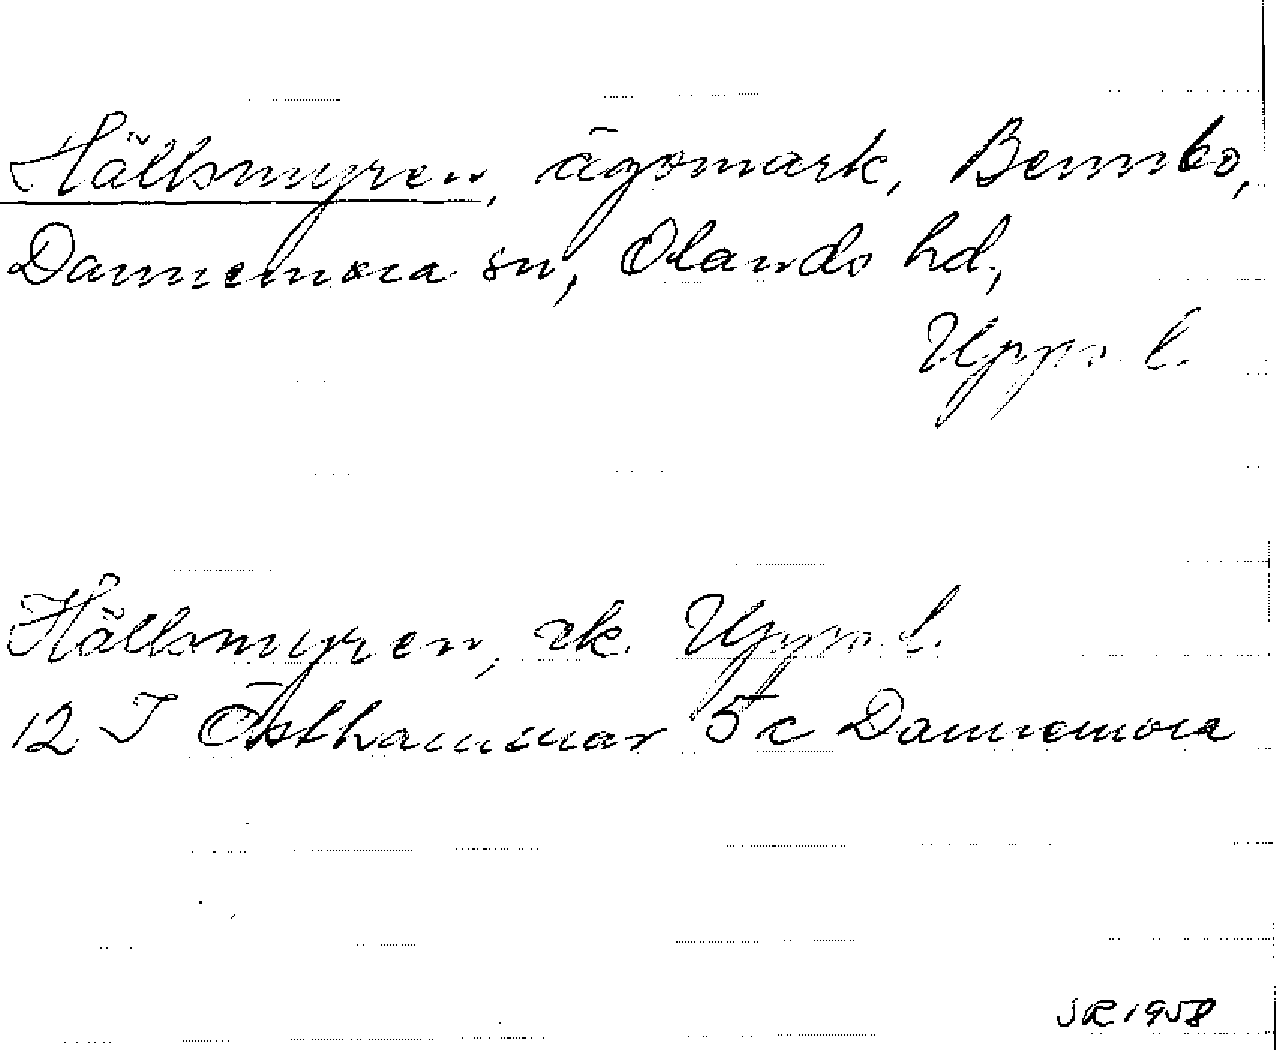 Hällsmyren, ägomark, Bennbo,
Dannemora sn, Olands hd,
Upps. l.
Hällsmyren, ek. Upps. l.
12 I Östhammar 5 c Dannemora
JR 1958